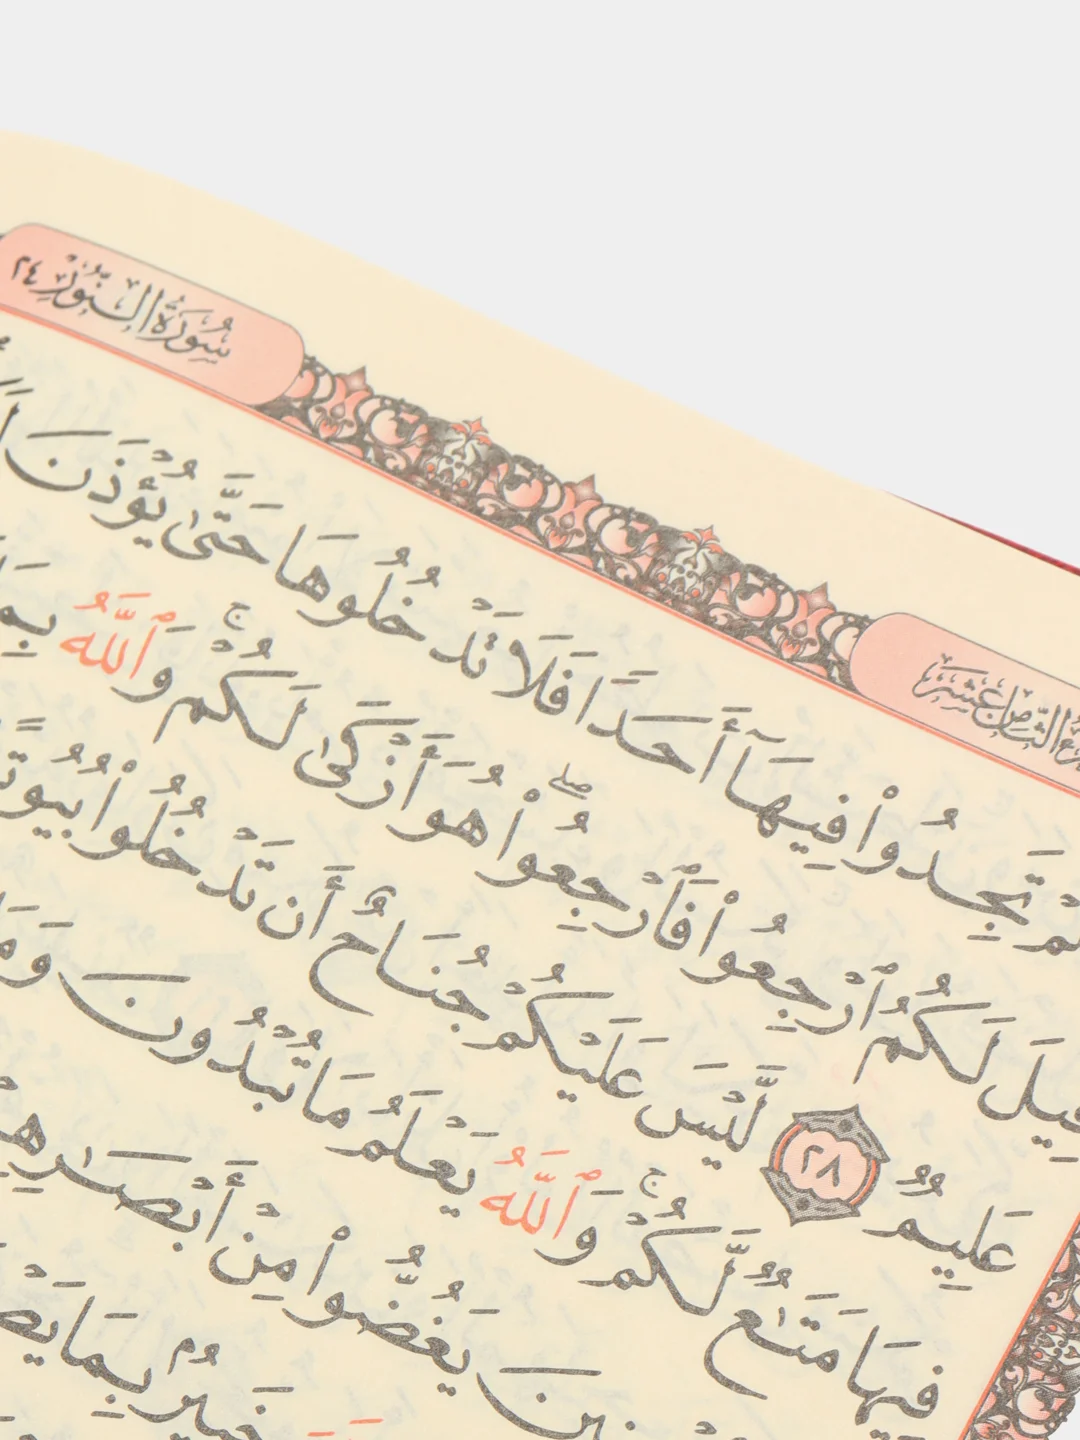 الثامن عشر
سُورَةُ النُّورِ ٢٤
تَجِدُوا۟ فِيهَآ أَحَدًا فَلَا تَدْخُلُوهَا حَتَّىٰ يُؤْذَنَ
قِيلَ لَكُمُ ٱرْجِعُوا۟ فَٱرْجِعُوا۟ ۖ هُوَ أَزْكَىٰ لَكُمْ ۚ وَٱللَّهُ
عَلِيمٌ ٢٨ لَّيْسَ عَلَيْكُمْ جُنَاحٌ أَن تَدْخُلُوا۟
فِيهَا مَتَـٰعٌ لَّكُمْ ۚ وَٱللَّهُ يَعْلَمُ مَا تُبْدُونَ
يَغُضُّوا۟ مِنْ
خَبِيرٌۢ بِمَا